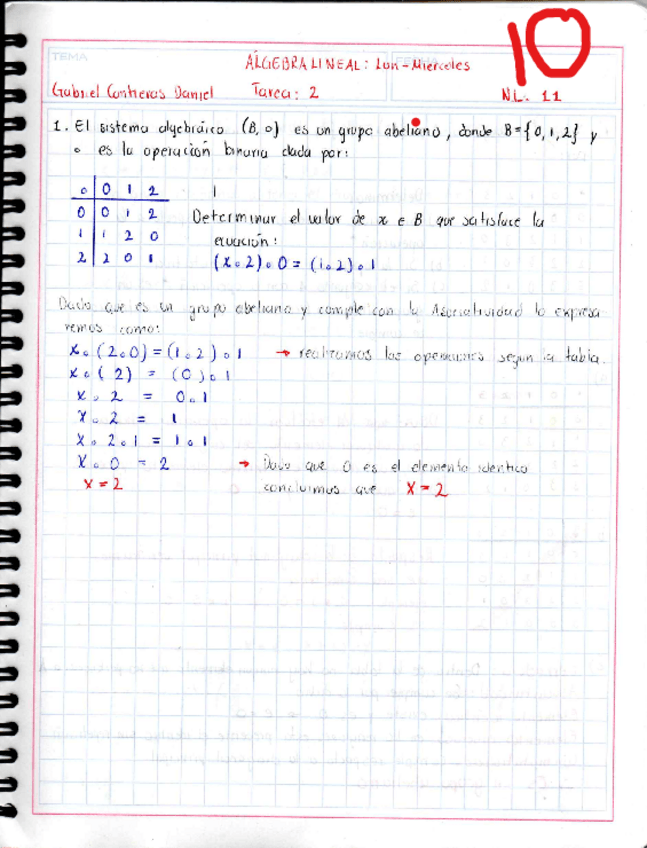 TEMA
ÁLGEBRA LINEAL: Lun-Miércoles
10
Gabriel Contreras Daniel Tarea: 2 N.L. 11
1. El sistema algebráico (B, ∘) es un grupo abeliano, donde B={0,1,2} y
∘ es la operación binaria dada por:
∘ 0 1 2
0 0 1 2
1 1 2 0
2 2 0 1
Determinar el valor de x ∈ B que satisface la
ecuación:
(x∘2)∘0=(1∘2)∘1
Dado que es un grupo abeliano y cumple con la Asociatividad lo expresa
remos como:
x∘(2∘0)=(1∘2)∘1 → realizamos las operaciones según la tabla.
x∘(2) = (0)∘1
x∘2 = 0∘1
x∘2 = 1
x∘2∘1 = 1∘1
x∘0 = 2 → Dado que 0 es el elemento identico
x=2 concluimos que x=2